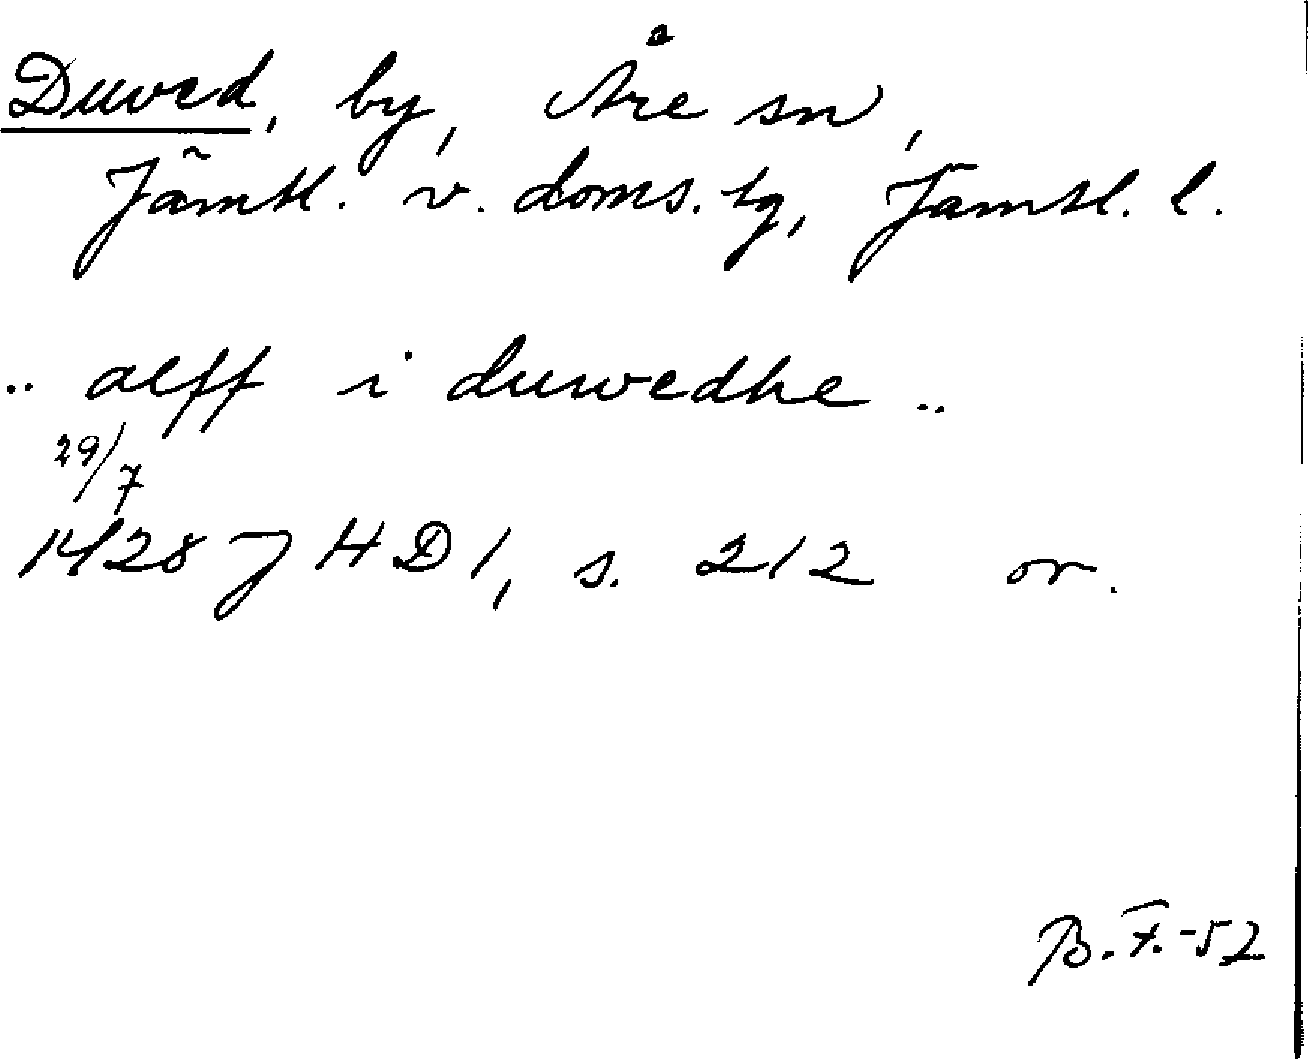 Duved, by, Åre sn,
Jämtl. v. doms. tg, Jämtl. l.
.. alff i duwedhe ..
29/7
1428 JHD 1, s. 212 or.
B. F. -52